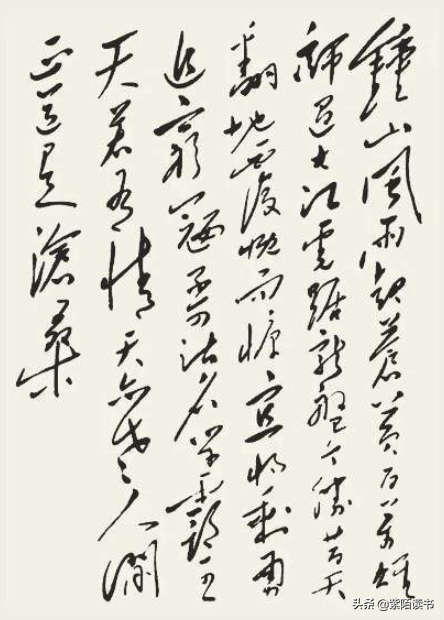 鍾山風雨起蒼黃百萬雄
師過大江虎踞龍盤今勝昔天
翻地覆慨而慷宜將剩勇
追窮寇不可沽名學霸王
天若有情天亦老人間
正道是滄桑
头条 @紫陌读书